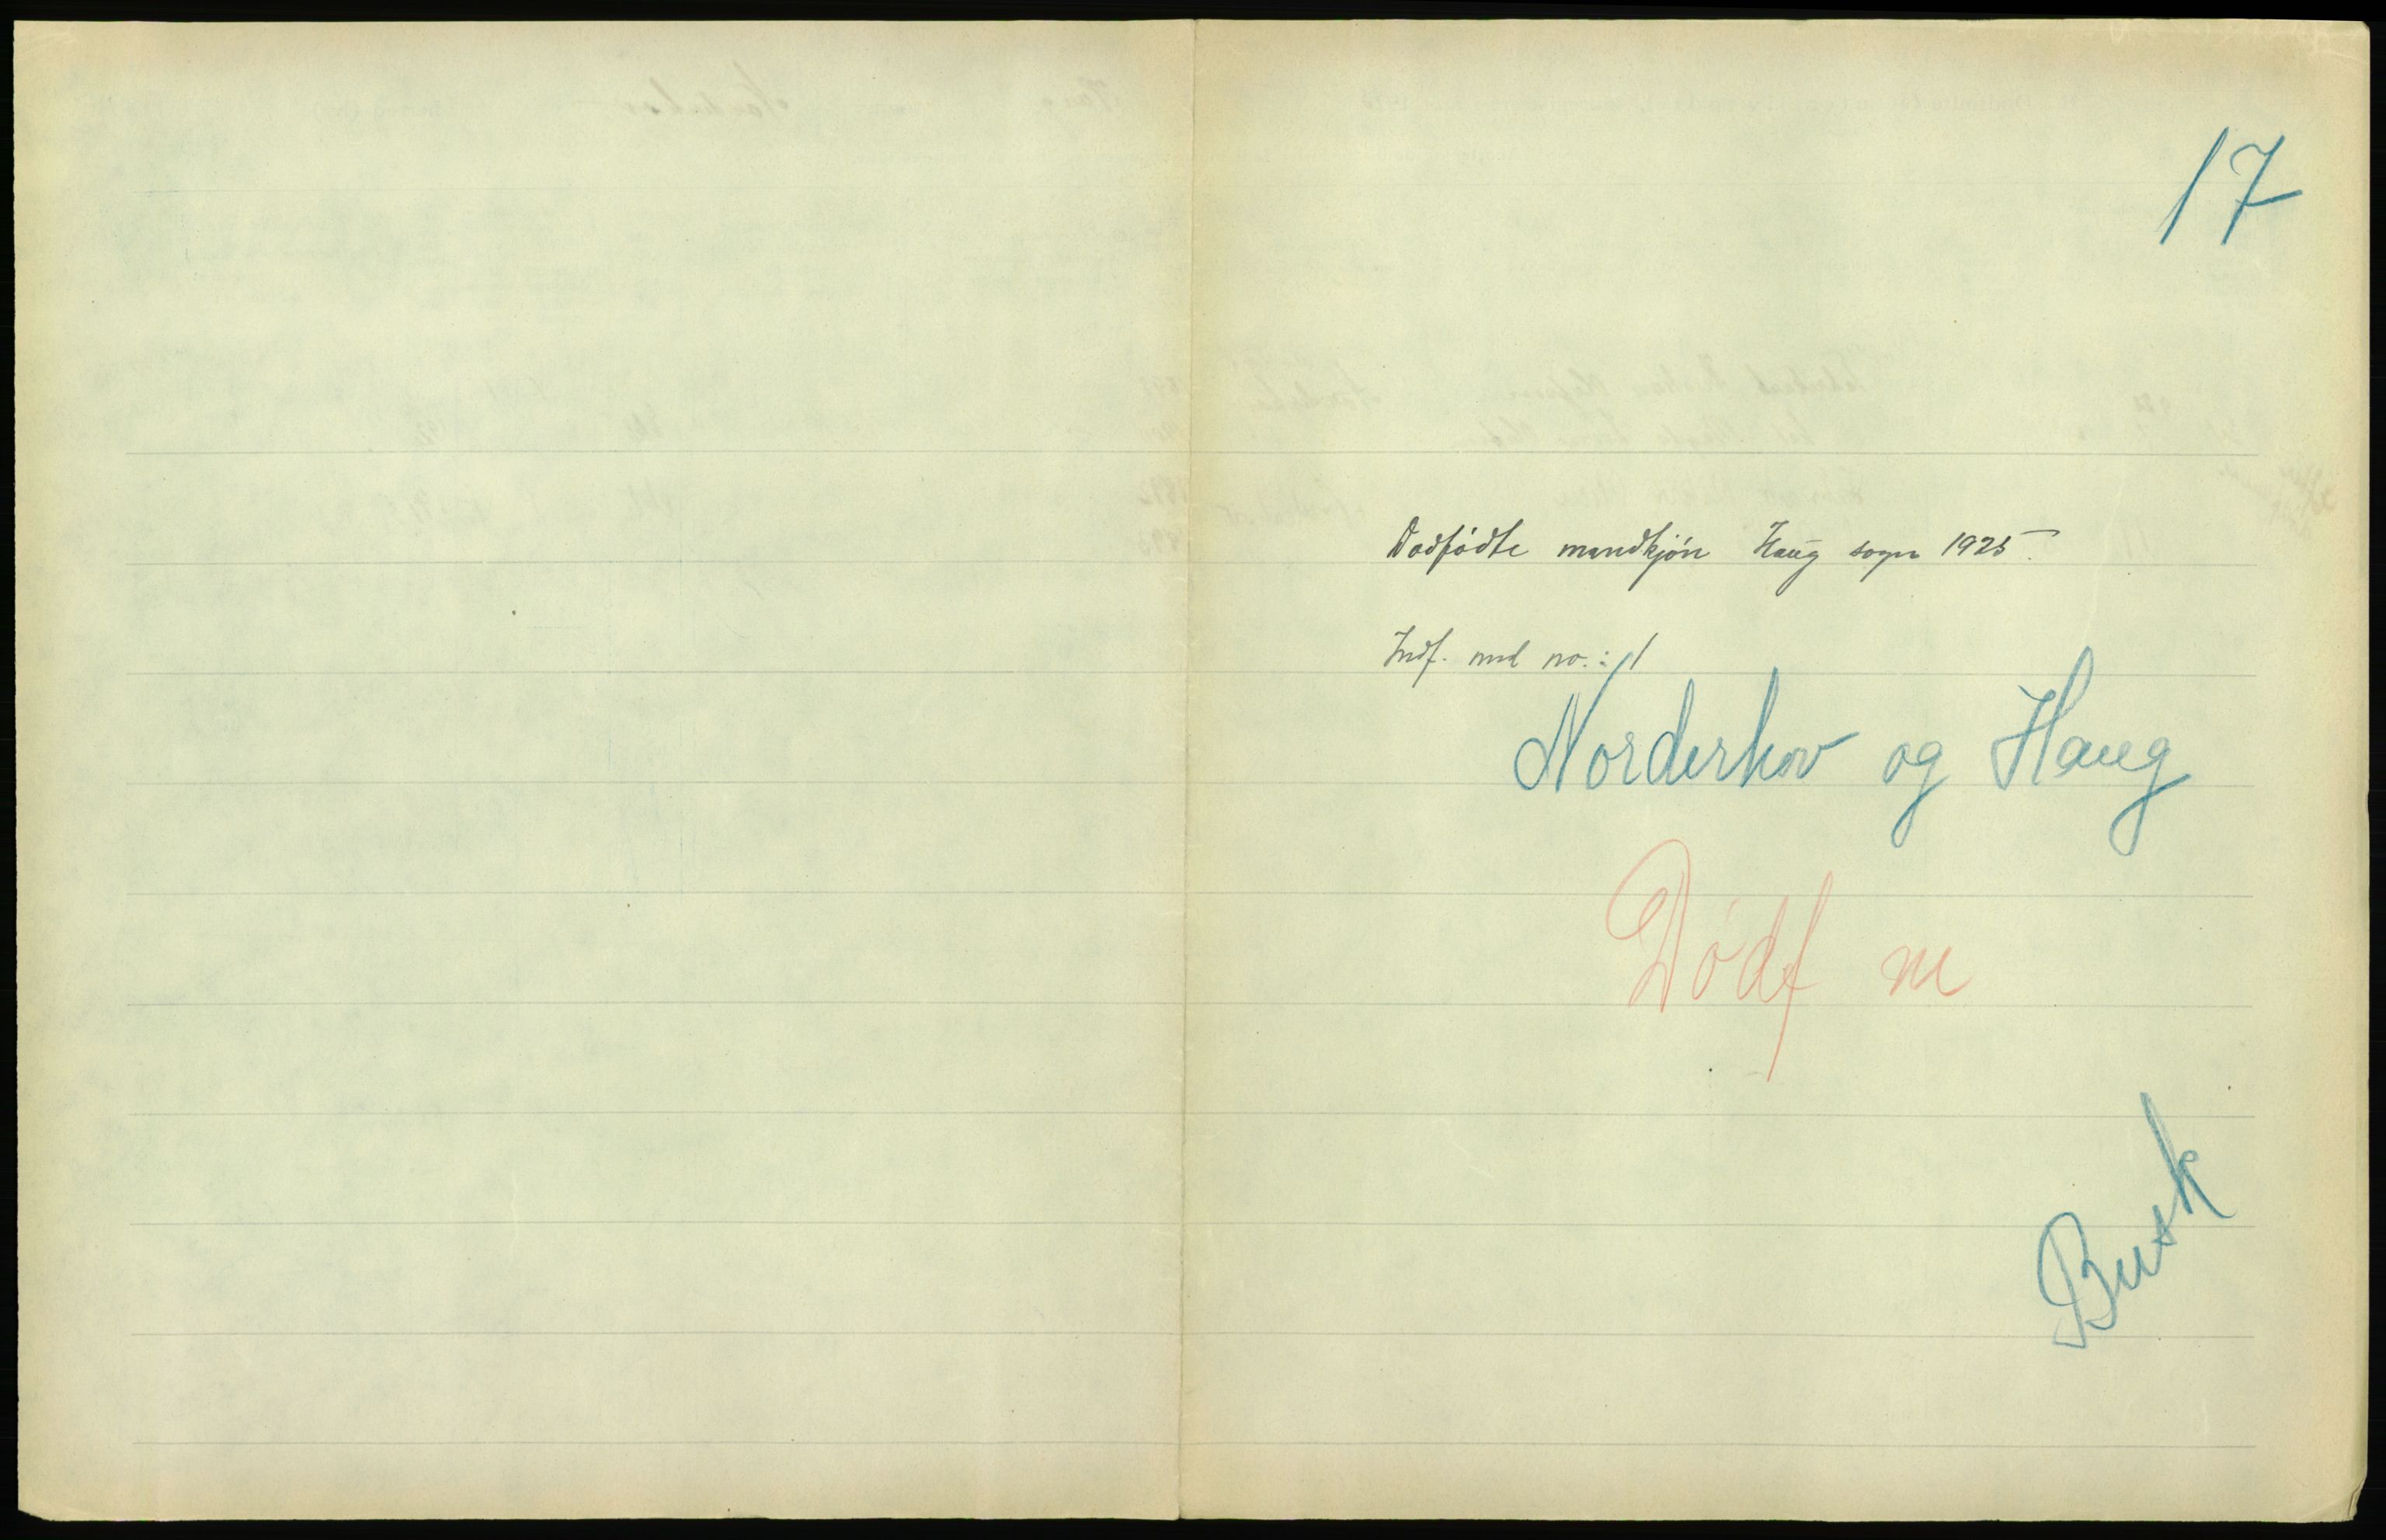 17
Dødfødte mandkjøn Haug sogn 1925.
Indf. med no.: 1
Norderhov og Haug
Dødf m
Busk